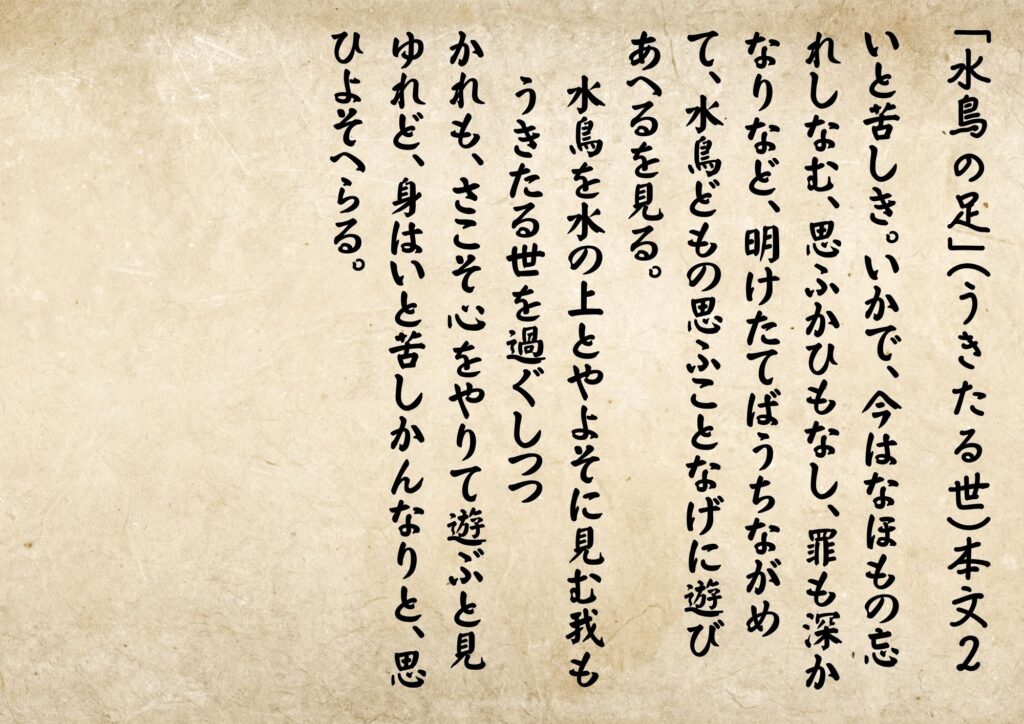 「水鳥の足」(うきたる世)本文2
いと苦しき。いかで、今はなほもの忘
れしなむ、思ふかひもなし、罪も深か
なりなど、明けたてばうちながめ
て、水鳥どもの思ふことなげに遊び
あへるを見る。
水鳥を水の上とやよそに見む我も
うきたる世を過ぐしつつ
かれも、さこそ心をやりて遊ぶと見
ゆれど、身はいと苦しかんなりと、思
ひよそへらる。